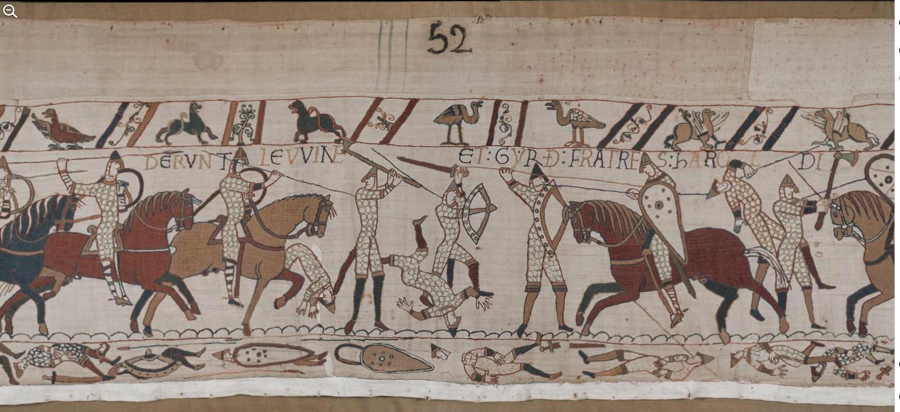 52
DERVNT LEVVINE ET: GYRÐ: FRATRES: hAROLDI